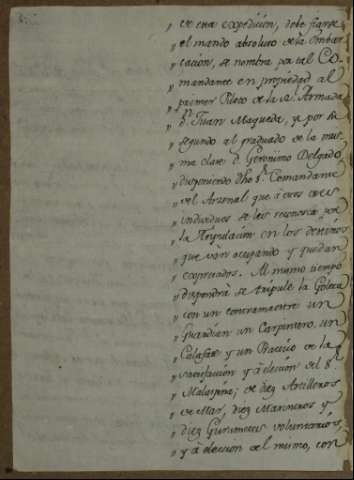 „ de esta expedicion, debe fiarse
„ el mando absoluto de la Embar
„ cacion, se nombra por tal Co-
„ mandante en propiedad al
„ primer Piloto de la Rl. Armada
„ Dn. Juan Maqueda, y por su
„ segundo al graduado de la mis-
„ ma clase D. Geronimo Delgado,
„ disponiendo dho Sr. Comandante
„ del Arsenal que à estos dos
„ individuos se les reconosca por
„ la Tripulacion en los destinos
„ que ván ocupando y quedan
„ expresados. Al mismo tiempo
„ dispondrá se tripule la Goleta
„ con un contramaestre un
„ Guardian un Carpintero, un
„ Calafate y un Practico de la
„ satisfaccion y à eleccion del Sr.
„ Malaspina; de diez Artilleros
„ de Mar, diez Marineros y
„ diez Grumetes voluntarios,
„ y à eleccion del mismo, con